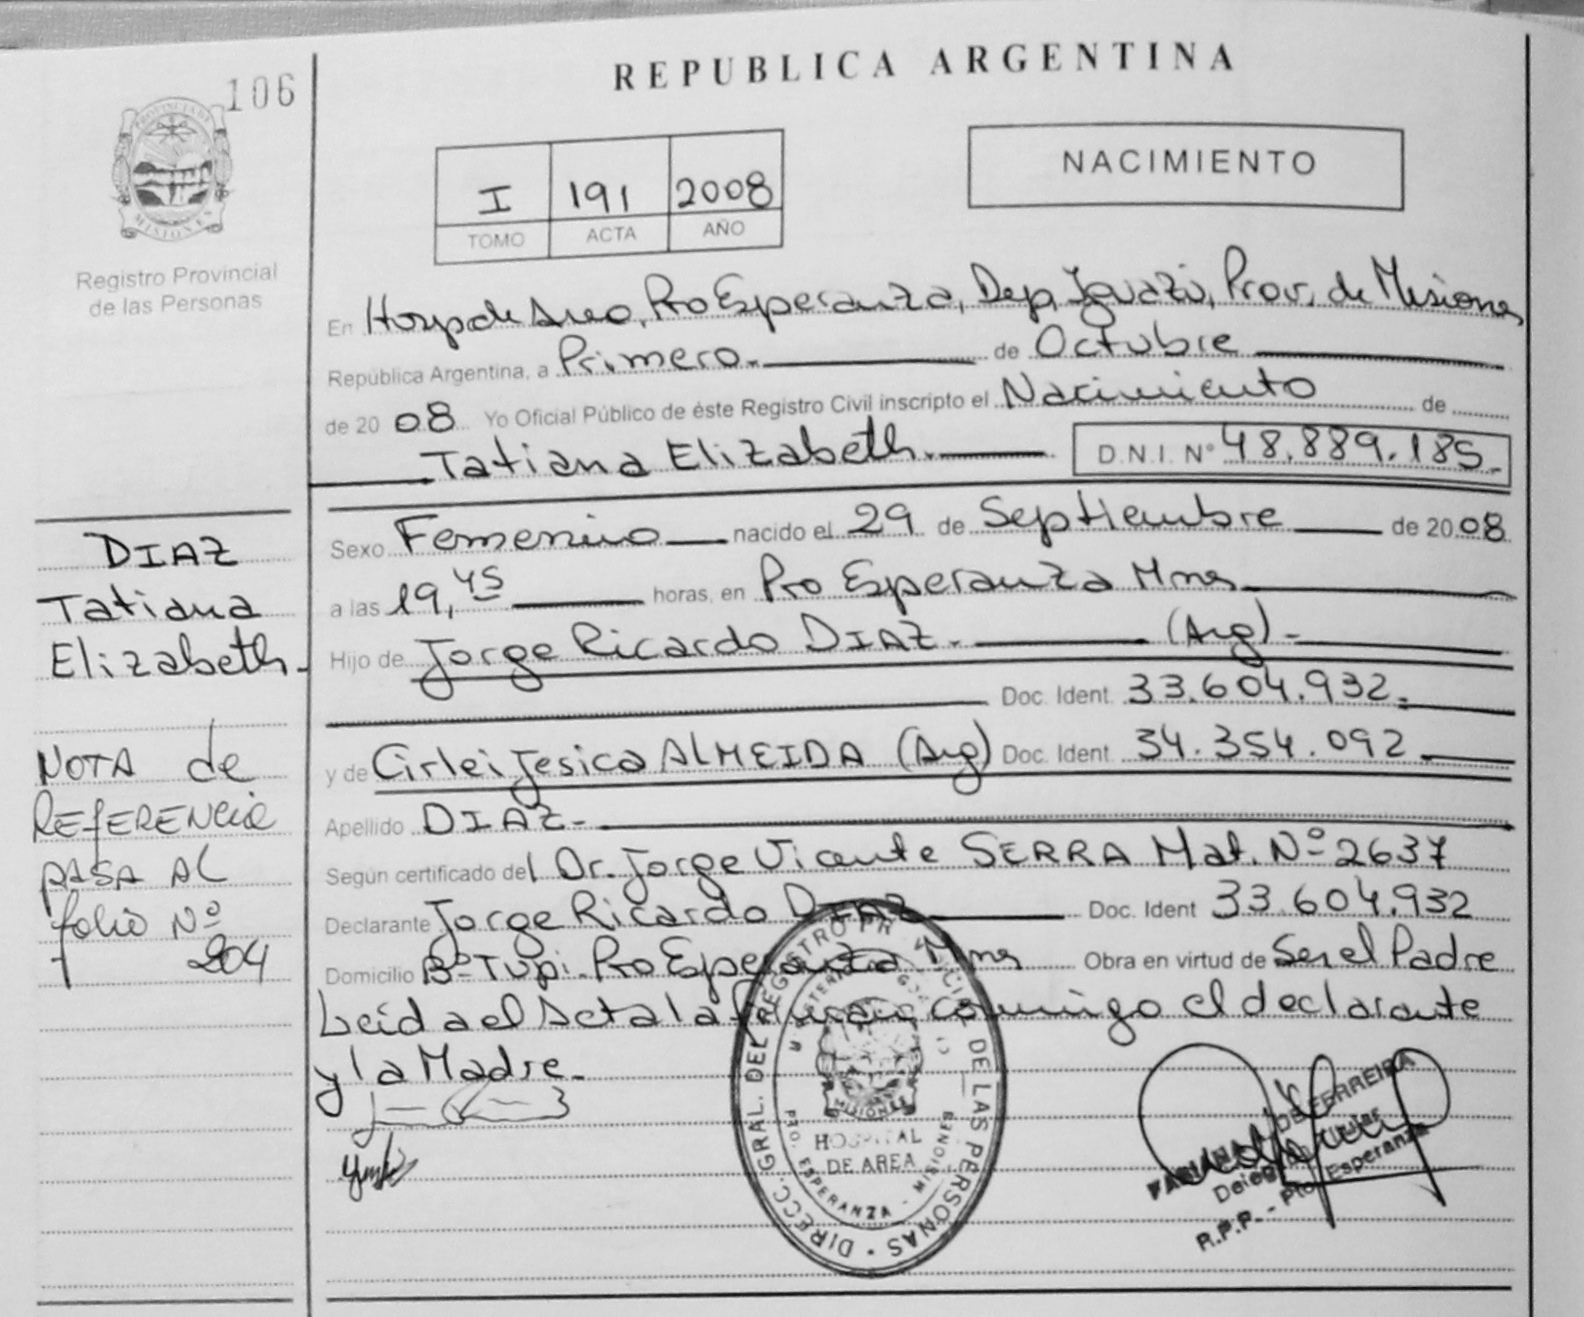 106
REPUBLICA ARGENTINA
PROVINCIA DE
MISIONES
Registro Provincial
de las Personas
I 191 2008
TOMO ACTA AÑO
NACIMIENTO
En Hosp de Area, Pto Esperanza, Dep, Iguazú, Prov, de Misiones
República Argentina, a Primero.- de Octubre
de 2008 Yo Oficial Público de éste Registro Civil inscripto el Nacimiento de
Tatiana Elizabeth. D.N.I. Nº 48.889.185.-
Sexo Femenino nacido el 29 de Septiembre de 2008
a las 19,45 horas, en Pto Esperanza Mnes
Hijo de Jorge Ricardo DIAZ.- (Arg)-
Doc. Ident. 33.604.932.-
y de Cirlei Jesica ALMEIDA (Arg) Doc. Ident. 34.354.092
Apellido DIAZ.-
Según certificado del Dr. Jorge Vicente SERRA Mat. Nº 2637
Declarante Jorge Ricardo DIAZ Doc. Ident 33.604.932
Domicilio Bº Tupi. Pto Esperanza Mnes Obra en virtud de Ser el Padre
Leid a el Acta la firman conmigo el declarante
y la Madre.-
DIAZ
Tatiana
Elizabeth.-
NOTA de
REFERENCIA
PASA AL
folio Nº
204
DIRECC. GRAL. DEL REGISTRO PROVINCIAL DE LAS PERSONAS
MISIONES
HOSPITAL
DE AREA
PTO. ESPERANZA - MISIONES
DE FERREIRA
Titular
R.P.P. - Pto. Esperanza